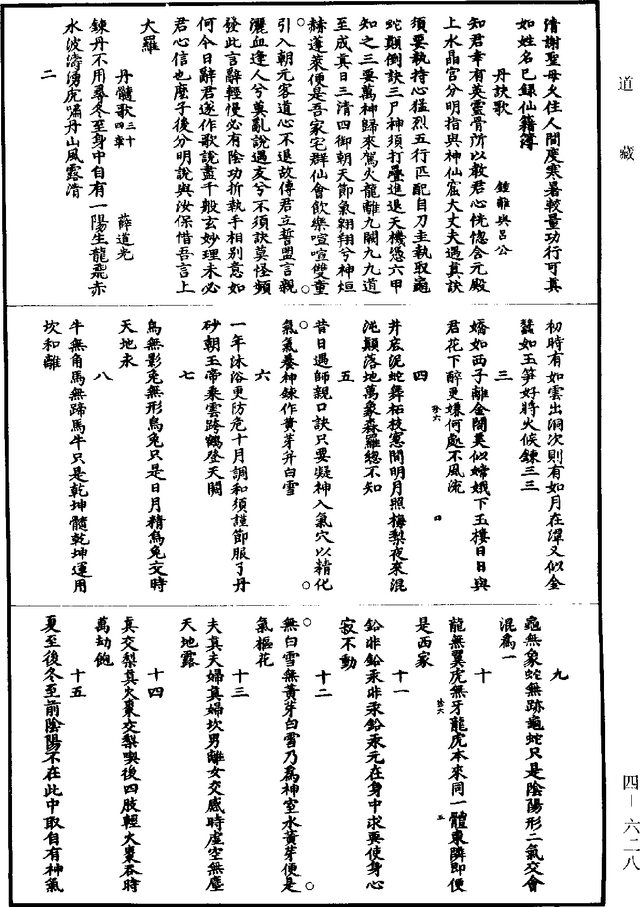 道藏
四—六二八
清謝聖母久住人間度寒暑較量功行可真
如姓名已録仙籍簿
丹訣歌
鍾離與呂公
知君幸有英靈骨所以教君心恍惚含元殿
上水晶宮分明指與神仙窟大丈夫遇真訣
須要執持心猛烈五行匹配自刀圭執取龜
蛇顛倒訣三尸神須打疊進退天機憑六甲
知之三要萬神歸來駕火龍離九闕九九道
至成真日三清四御朝天節氣翱翔兮神烜
赫蓬萊便是吾家宅群仙會飲樂喧喧雙童
引入朝元客道心不退故傳君立誓盟言親
灑血逢人兮莫亂說遇友兮不須訣莫怪頻
發此言辭輕慢必有陰功折執手相別意如
何今日辭君遂作歌說盡千般玄妙理未必
君心信也麼子後分明說與汝保惜吾言上
大羅
丹髓歌三十四章
薛道光
鍊丹不用尋冬至身中自有一陽生龍飛赤
水波濤湧虎嘯丹山風露清
二
初時有如雲出洞次則有如月在潭又似金
蠶如玉笋好將火候鍊三三
三
嬌如西子離金閣美似嫦娥下玉樓日日與
君花下醉更嫌何處不風流
四
井底泥蛇舞柘枝窻間明月照梅梨夜來混
沌顛落地萬象森羅總不知
五
昔日遇師親口訣只要凝神入氣穴以精化
氣氣養神鍊作黃芽并白雪
六
一年沐浴更防危十月調和須謹節服了丹
砂朝玉帝乘雲跨鶴登天闕
七
烏無影兔無形烏兔只是日月精烏兔交時
天地永
八
牛無角馬無蹄馬牛只是乾坤髓乾坤運用
坎和離
九
龜無象蛇無跡龜蛇只是陰陽形二氣交會
混爲一
十
龍無翼虎無牙龍虎本來同一體東隣即便
是西家
十一
鉛非鉛汞非汞鉛汞元在身中求要使身心
寂不動
十二
無白雪無黃芽白雪乃爲神室水黃芽便是
氣樞花
十三
夫真夫婦真婦坎男離女交感時虛空無塵
天地露
十四
真交梨真火棗交梨喫後四肢輕火棗吞時
萬劫飽
十五
夏至後冬至前陰陽不在此中取自有神氣